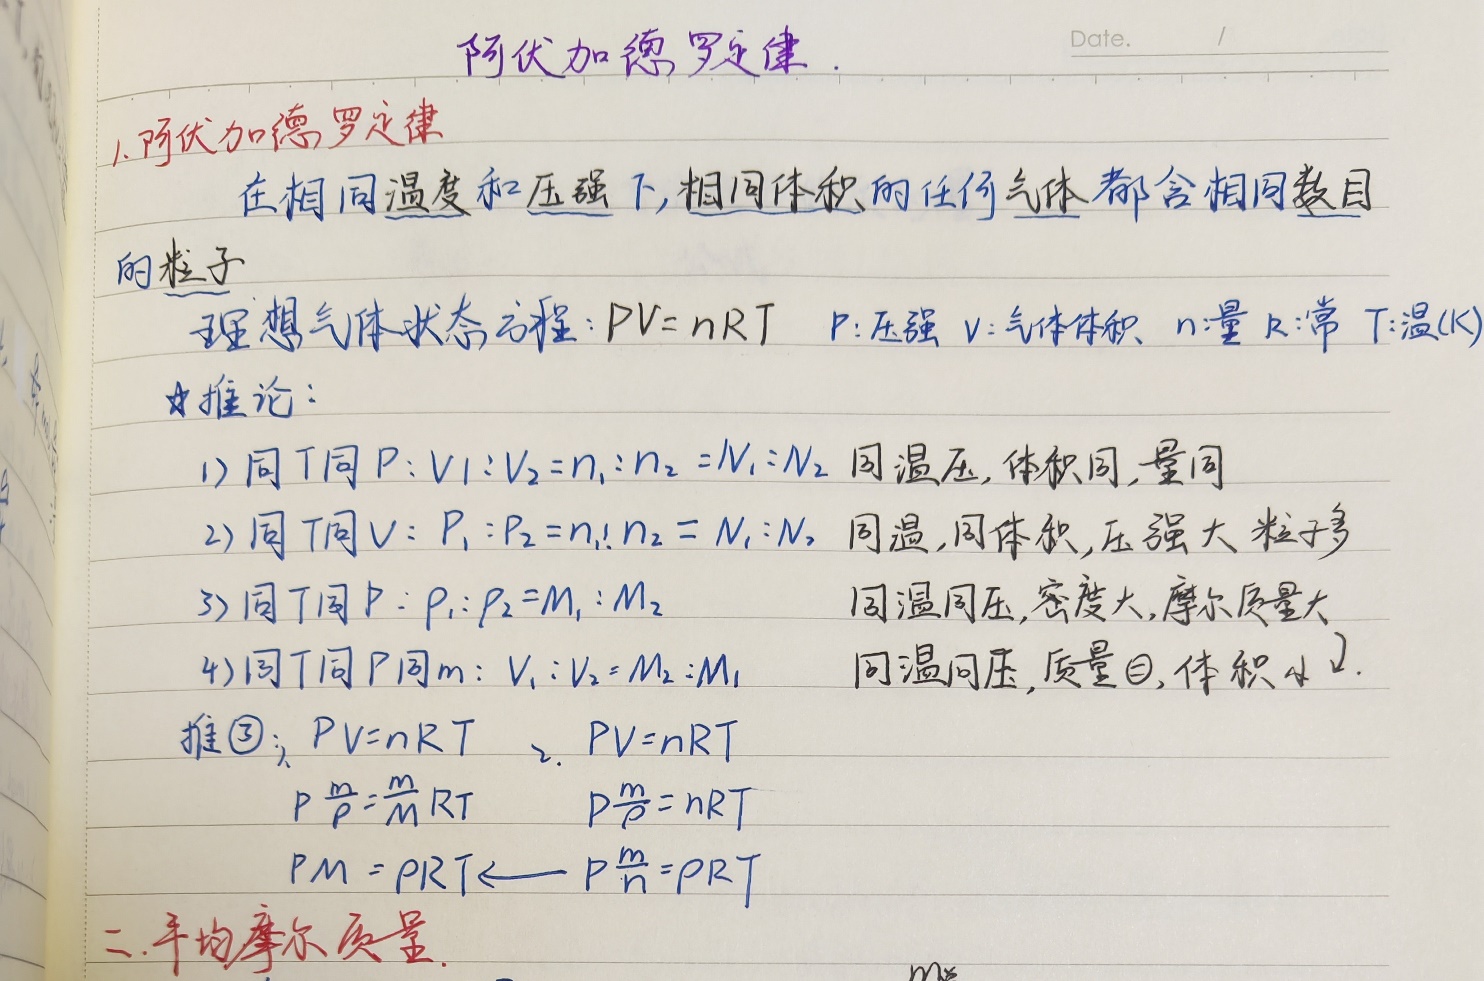 阿伏加德罗定律.
Date. /
1.阿伏加德罗定律
在相同温度和压强下,相同体积的任何气体都含相同数目
的粒子
理想气体状态方程:PV=nRT P:压强 V:气体体积 n:量 R:常 T:温(K)
☆推论:
1)同T同P:V1:V₂=n₁:n₂=N₁:N₂ 同温压,体积同,量同
2)同T同V:P₁:P₂=n₁:n₂=N₁:N₂ 同温,同体积,压强大 粒子多
3)同T同P:ρ₁:ρ₂=M₁:M₂ 同温同压,密度大,摩尔质量大
4)同T同P同m:V₁:V₂=M₂:M₁ 同温同压,质量 ,体积小
推③:1, PV=nRT 2. PV=nRT
P m/ρ = m/M RT P m/ρ = nRT
PM = ρRT ← P m/n = ρRT
二.平均摩尔质量.